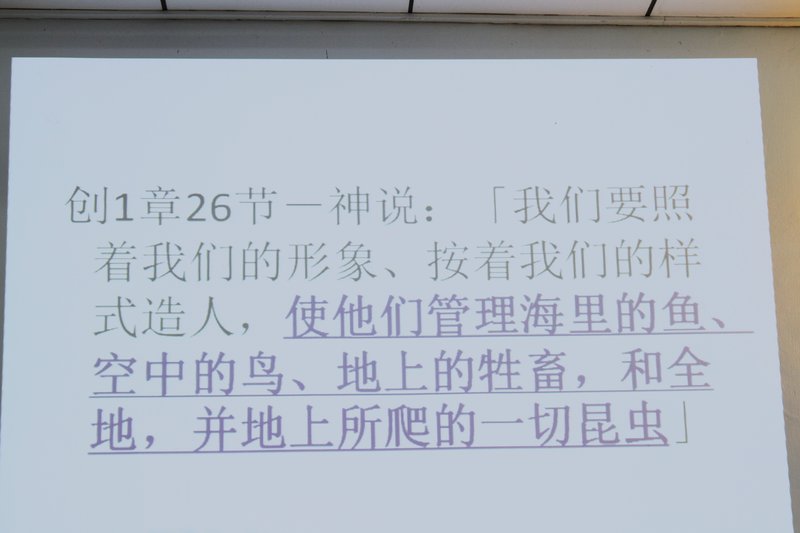 创1章26节－神说：「我们要照
着我们的形象、按着我们的样
式造人，使他们管理海里的鱼、
空中的鸟、地上的牲畜，和全
地，并地上所爬的一切昆虫」